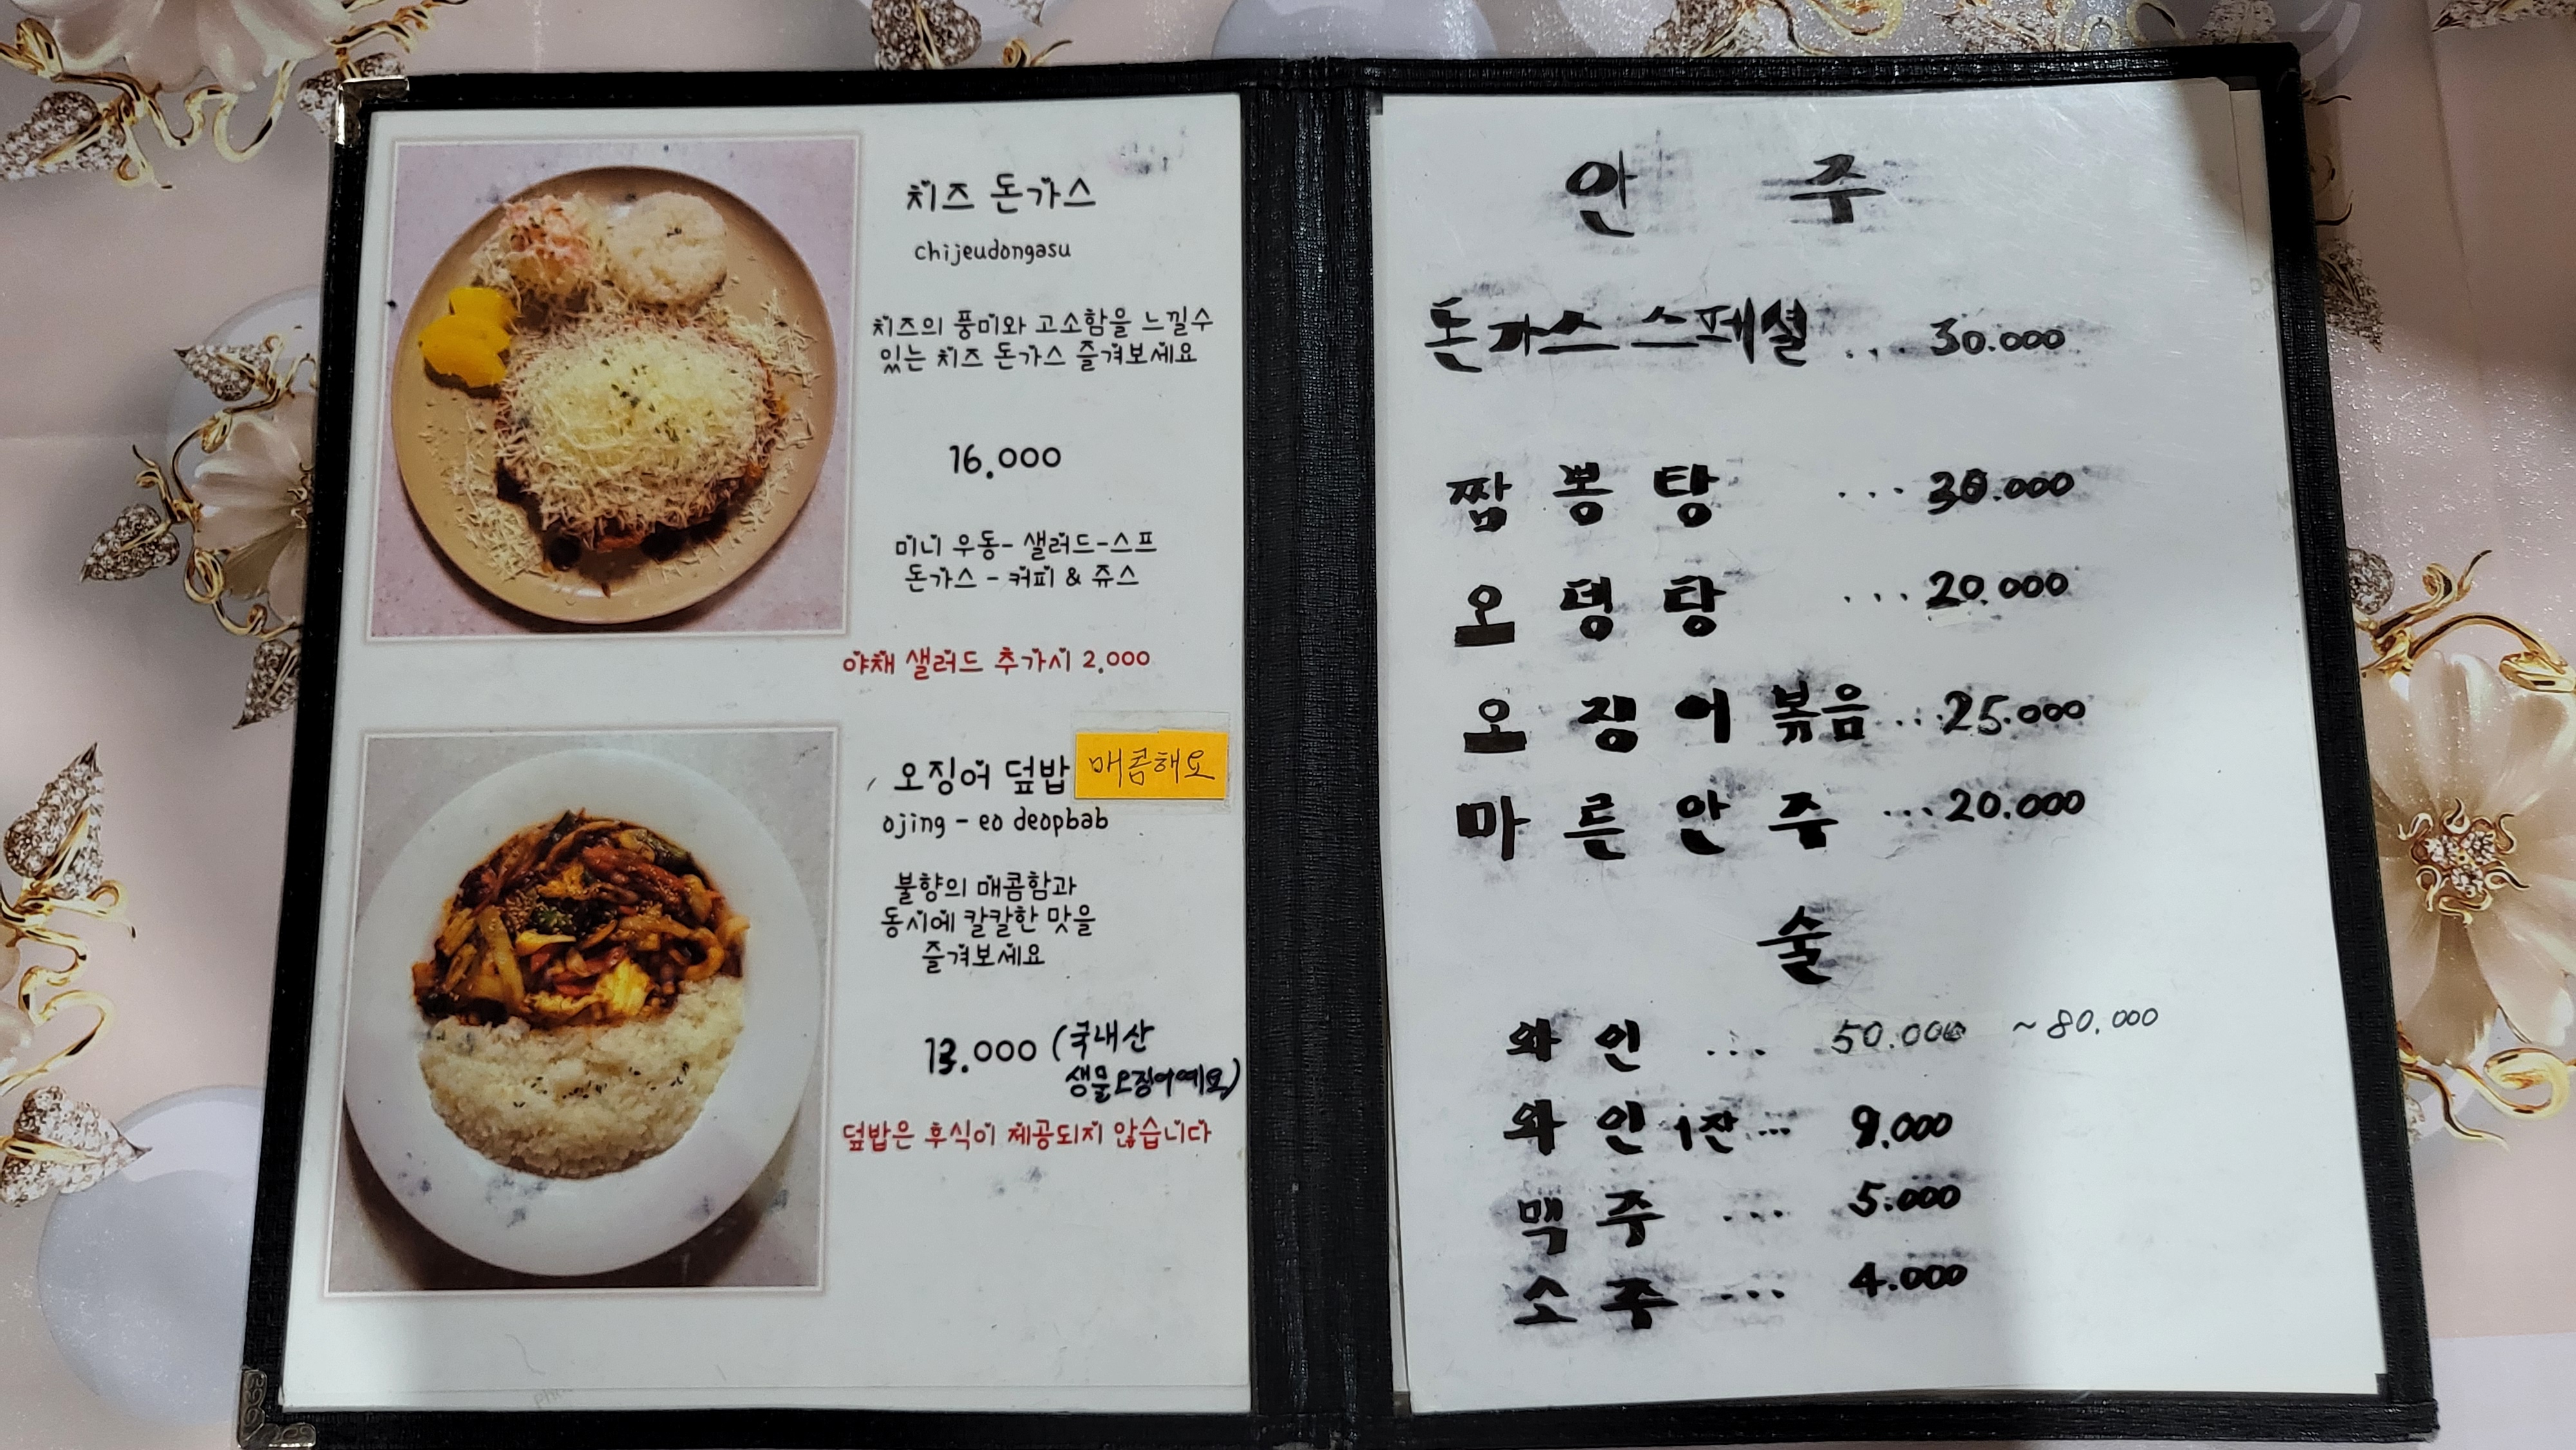 치즈 돈가스
chijeudongasu
치즈의 풍미와 고소함을 느낄수
있는 치즈 돈가스 즐겨보세요
16.000
미니 우동- 샐러드-스프
돈가스 - 커피 & 쥬스
야채 샐러드 추가시 2.000
오징어 덮밥 매콤해요
ojing - eo deopbab
불향의 매콤함과
동시에 칼칼한 맛을
즐겨보세요
13.000 (국내산
생물오징어예요)
덮밥은 후식이 제공되지 않습니다
안 주
돈가스 스페셜 ... 30.000
짬 뽕 탕 ... 30.000
오 뎅 탕 ... 20.000
오 징 어 볶음 ... 25.000
마 른 안 주 ... 20.000
술
와 인 .... 50.000 ~80.000
와 인 1잔 ... 9.000
맥 주 ... 5.000
소 주 .... 4.000